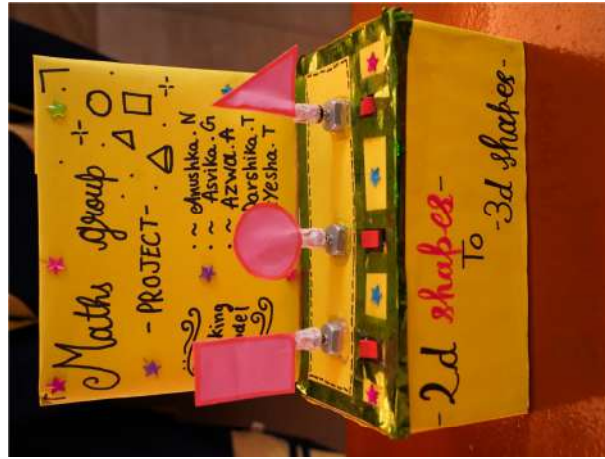 Maths group
- PROJECT -
:~ Anushka. N
:~ Asvika. G
:~ Azwa. A
Darshika. T
Yesha. T
-2d shapes-
To
-3d shapes-